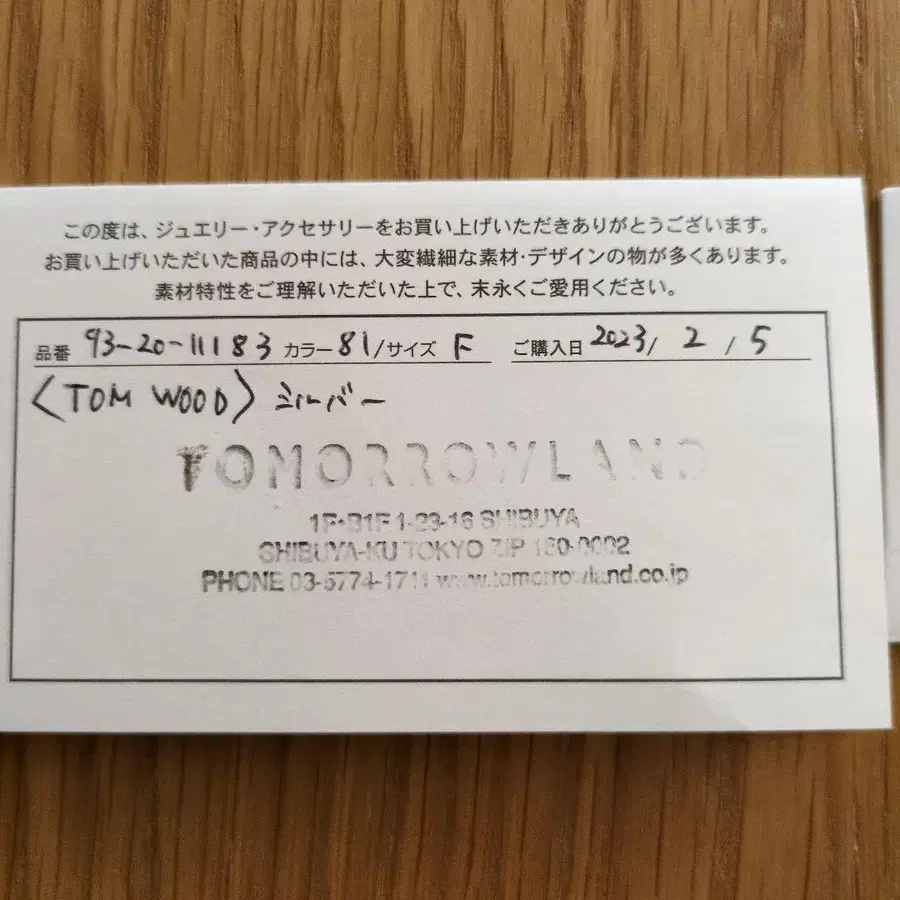 この度は、ジュエリー・アクセサリーをお買い上げいただきありがとうございます。
お買い上げいただいた商品の中には、大変繊細な素材・デザインの物が多くあります。
素材特性をご理解いただいた上で、末永くご愛用ください。
品番 93-20-11183 カラー 81/サイズ F ご購入日 2023/2/5
〈TOM WOOD〉シルバー
TOMORROWLAND
1F・B1F 1-23-16 SHIBUYA
SHIBUYA-KU TOKYO ZIP 150-0002
PHONE 03-5774-1711 www.tomorrowland.co.jp